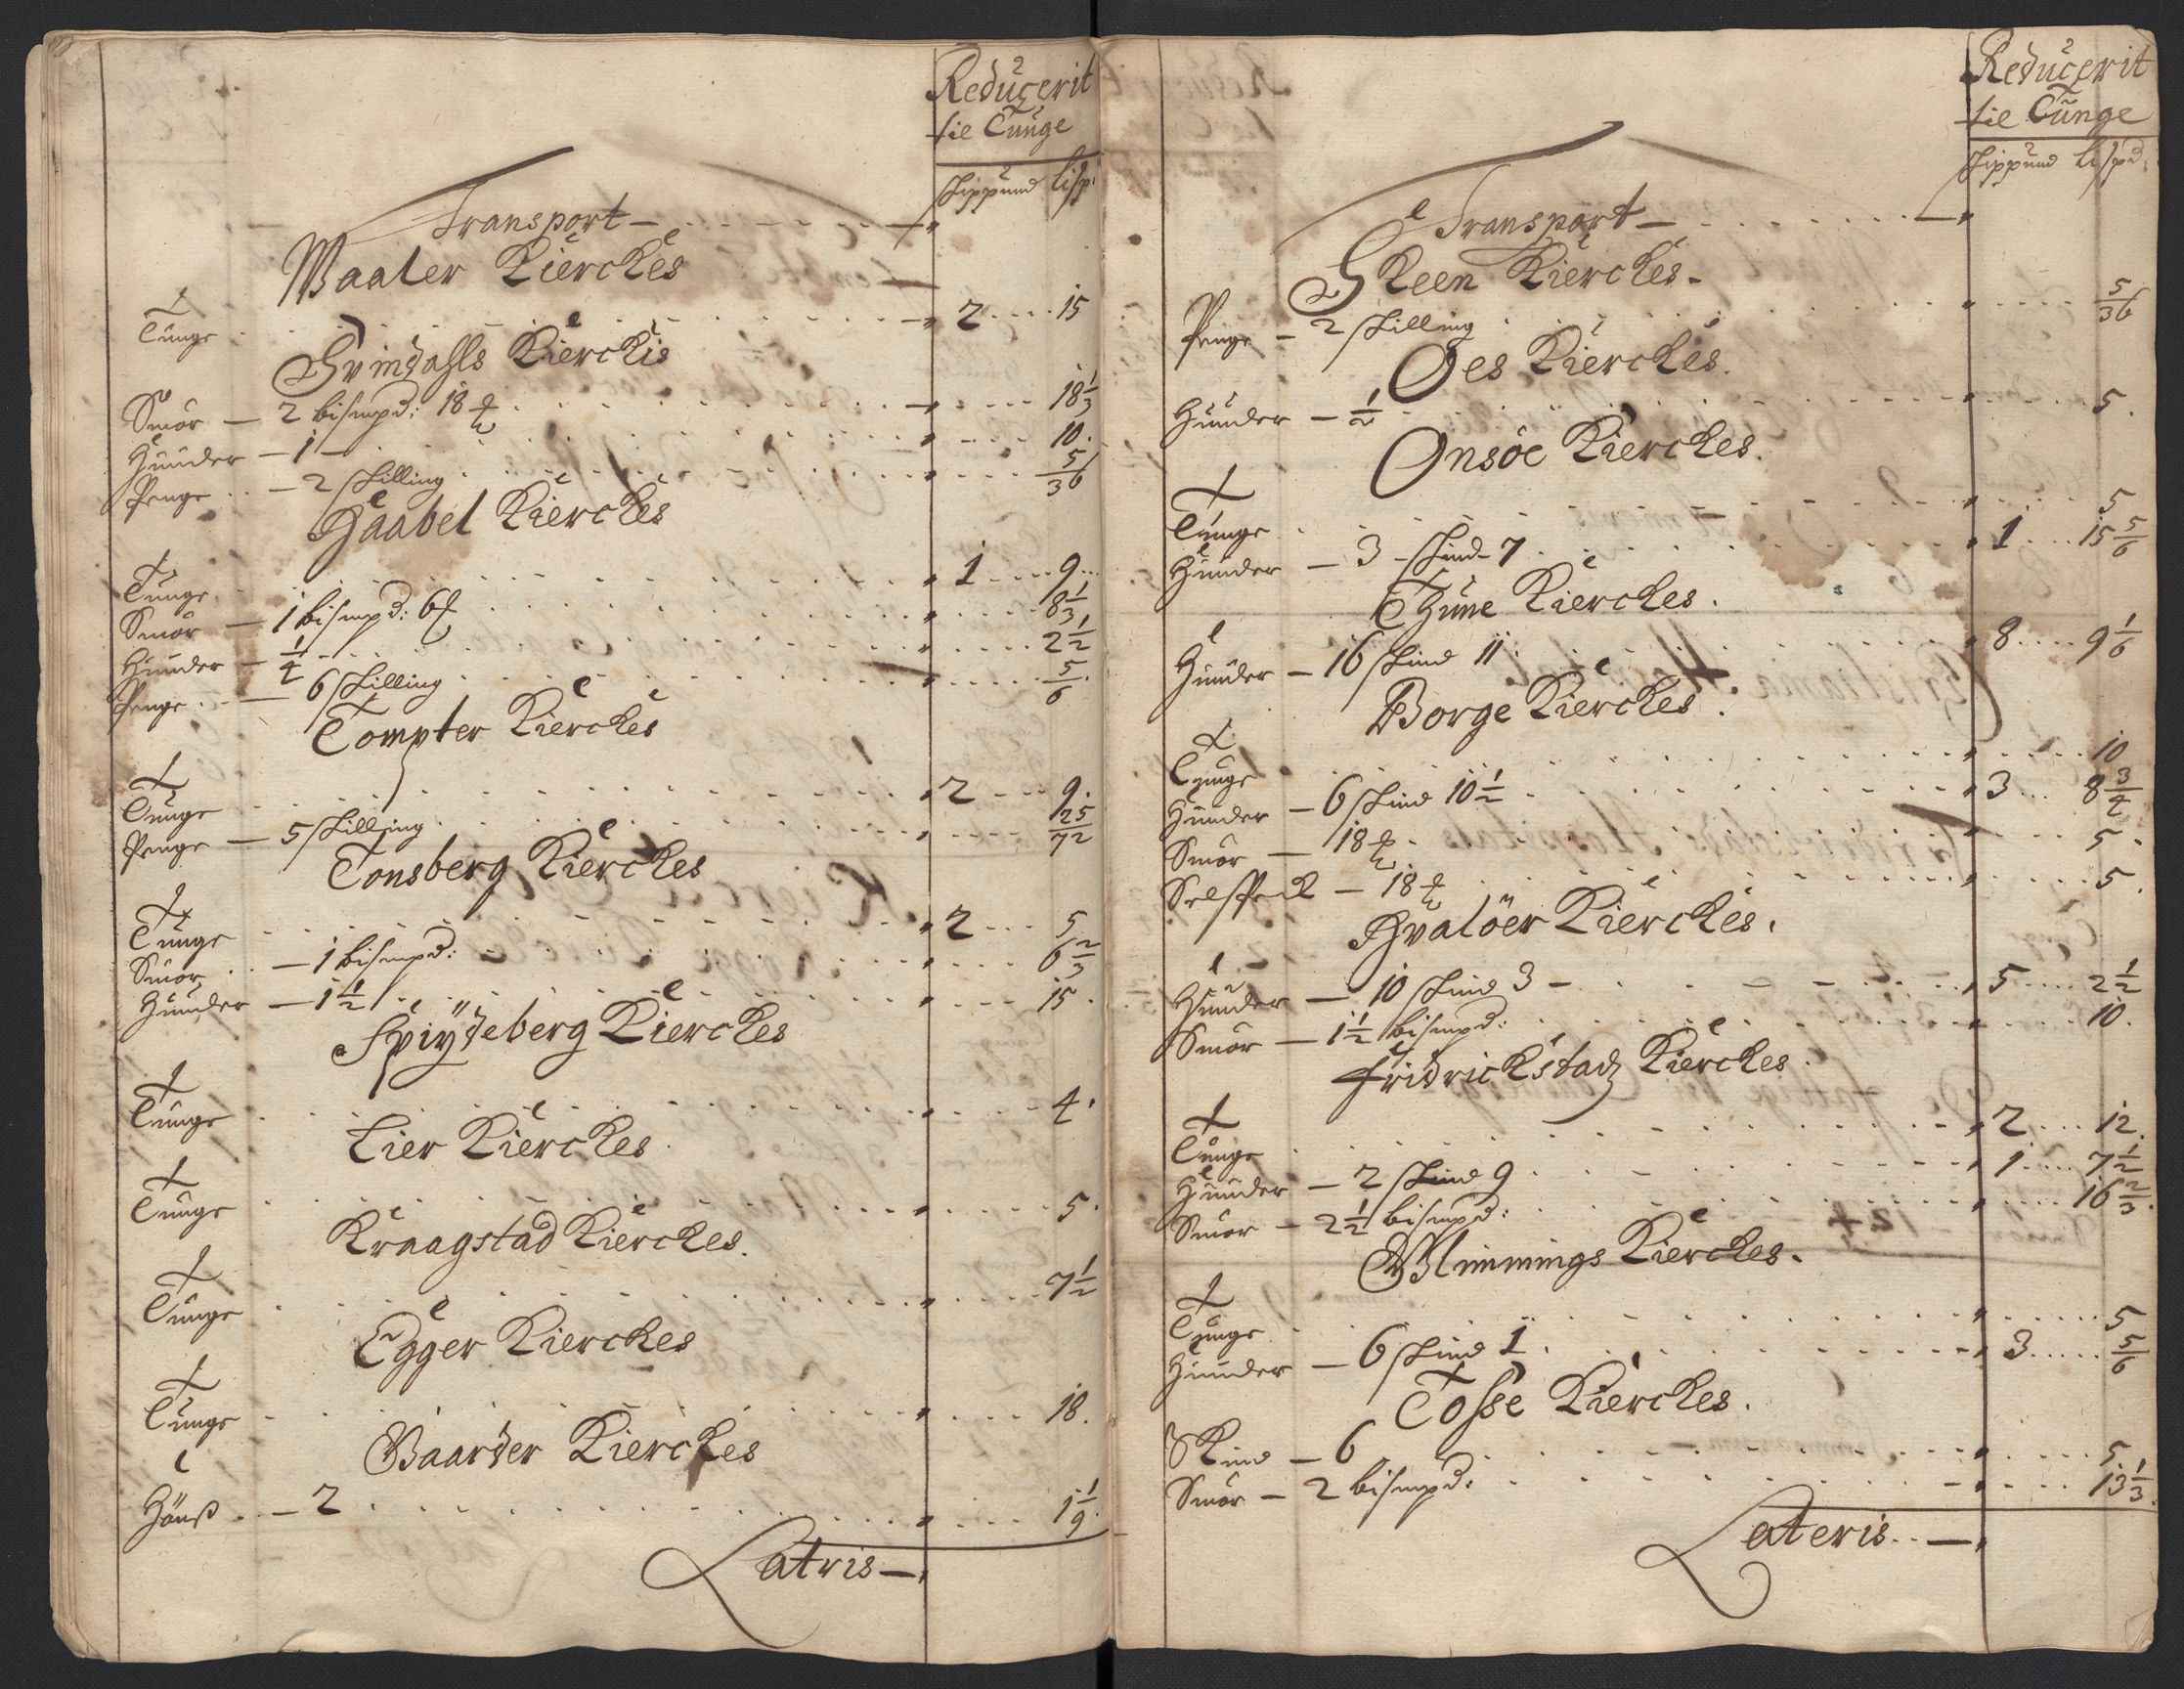 Reducerit
til Tunge
skippund lisp:
Transport
Waaler Kierckes
Tunge 2 15
Svindahls Kierckis
Smör — 2 bismpd: 18 ℔ 18 1/3
Huuder — 1 — 10
Penge — 2 skilling 5/36
Haabel Kierckes
Tunge 1 9
Smör — 1 bismpd: 6 ℔ 8 1/3
Huuder — 1/4 2 1/2
Penge — 6 skilling 5/6
Tompter Kierckes
Tunge 2 9
Penge — 5 skilling 25/72
Tonsberg Kierckes
Tunge 2 5
Smör — 1 bismpd: 6 2/3
Huuder — 1 1/2 15
Spÿdeberg Kierckes
Tunge 4
Lier Kierckes
Tunge 5
Kraagstad Kierckes
Tunge 7 1/2
Egger Kierckes
Tunge 18
Baarder Kierckes
Hönß — 2 1 1/9
Latris —
Reducerit
til Tunge
skippund lispd:
Transport —
Skeen Kierckes
Penge — 2 skilling 5/36
Oes Kierckes
Huuder — 1/2 5
Onsöe Kierckes
Tunge 5
Huuder — 3 skind 7 1 15 5/6
Thune Kierckes
Huuder — 16 skind 11 8 9 1/6
Borge Kierckes
Tunge 10
Huuder — 6 skind 10 1/2 3 8 3/4
Smör — 18 ℔ 5
Selspeck — 18 ℔ 5
Hvalöer Kierckes
Huuder — 10 skind 3 5 2 1/2
Smör — 1 1/2 bismpd: 10
Fridrickstadz Kierckes
Tunge 2 12
Huuder — 2 skind 9 1 7 1/2
Smör — 2 1/2 bismpd: 16 2/3
Glimmings Kierckes
Tunge 5
Huuder — 6 skind 1 3 5/6
Tosse Kierckes
Skind — 6 5
Smör — 2 bismpd: 13 1/3
Lateris —